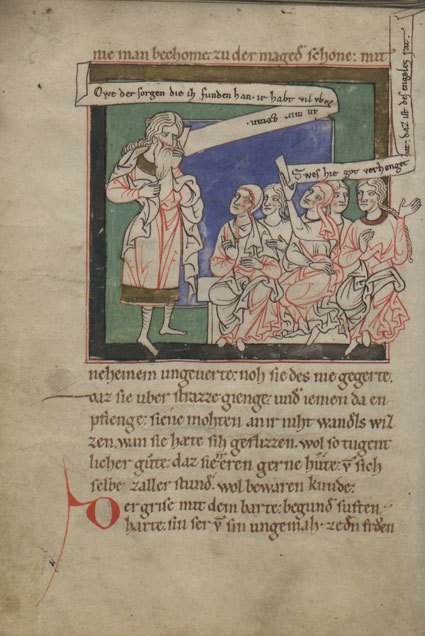 nie man bechome: zu der maged schone: mit
Owe der sorgen die ih funden han. ir habt vil vbel
an mir getan.
Swes hie got verhenget
hat: daz ist des engeles tat.
neheinem ungeuerte: noh sie des nie gegerte.
daz sie uber strazze gienge: und iemen da en
pfienge: siene mohten an ir niht wandls wil
zen, wan sie hæte sih geflizzen, wol so tugent
licher gůte: daz sie eren gerne hůte: v̄ sich
selbe zaller stund, wol bewaren kunde:
Der grise mit dem barte: begund suften
harte: sin ser v̄ sin ungemah. zedn frŏen